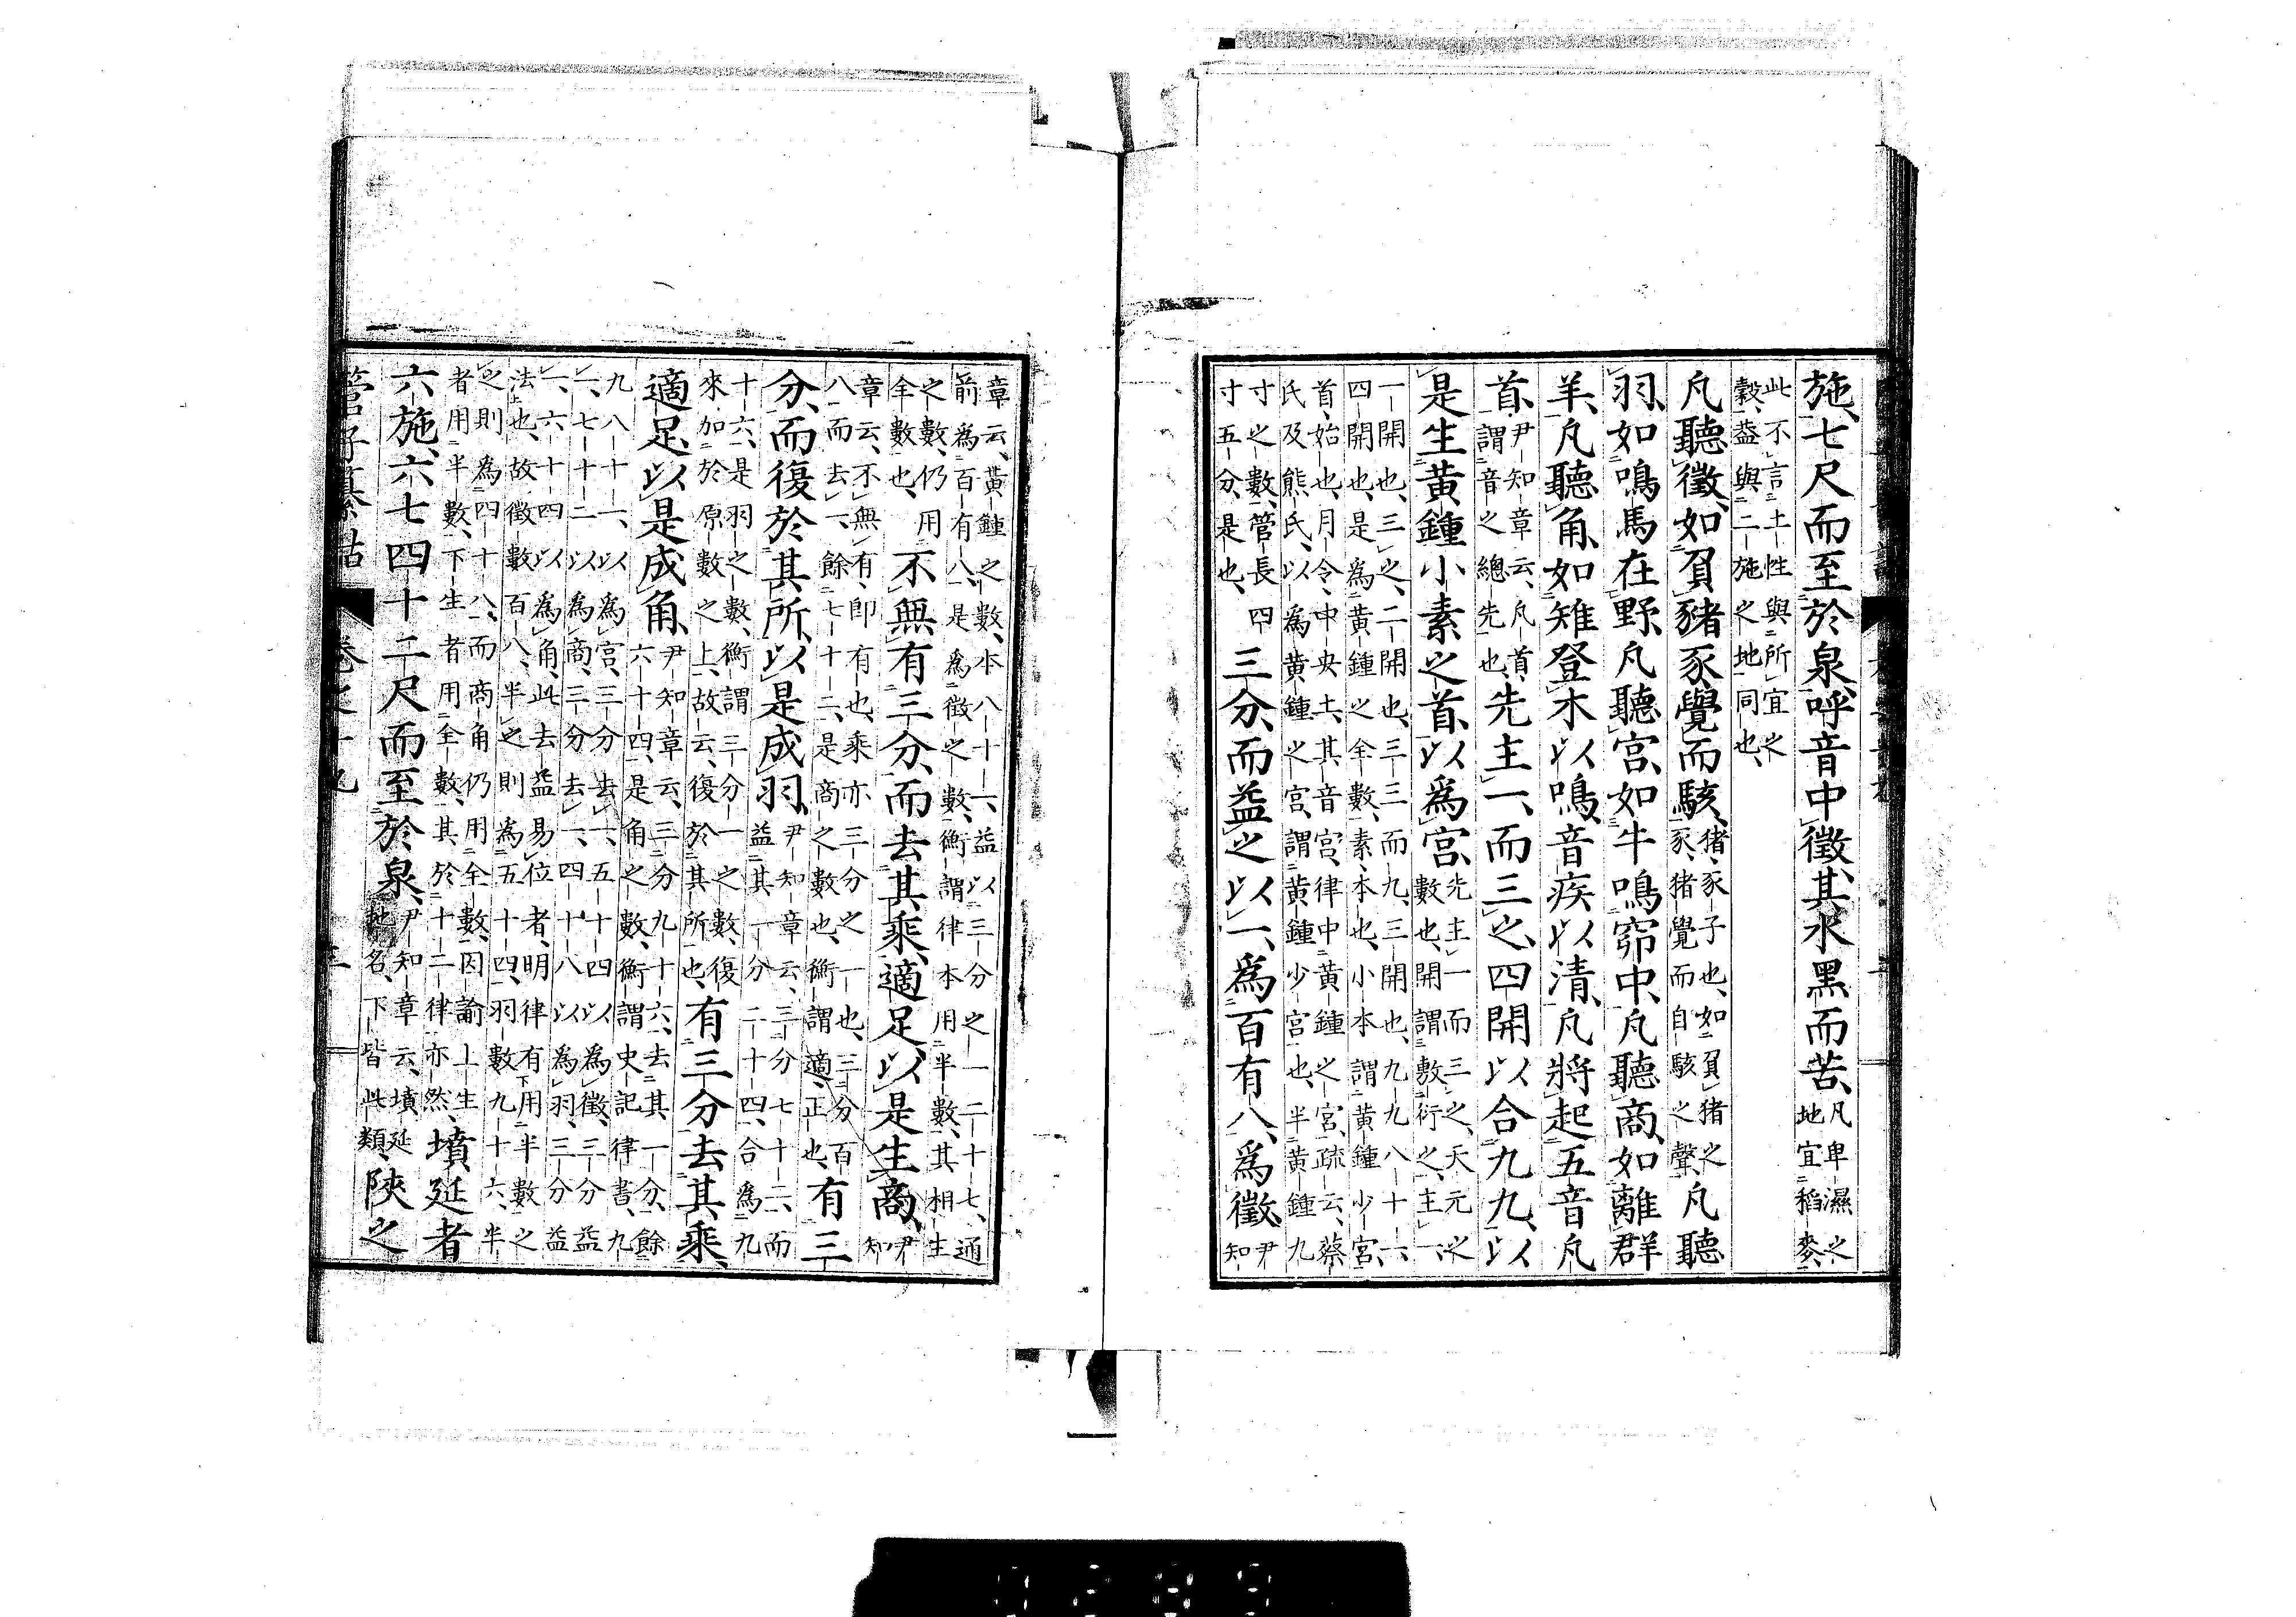 施、七尺而至於泉、呼音中徵、其水黑而苦、凡卑濕之
地宜稻麥、
此不言土性與所宜之
穀、蓋與二施之地同也、
凡聽徵、如負豬豕、覺而駭、豬、豕子也、如負豬之
豕、豬覺而自駭之聲、凡聽
羽、如鳴馬在野、凡聽宮、如牛鳴窌中、凡聽商、如離群
羊、凡聽角、如雉登木以鳴、音疾以清、凡將起五音凡
首、尹知章云、凡首、
謂音之總先也、先主一、而三之、四開以合九九、以
是生黃鍾小素之首、以爲宮、先主一而三之、天元之
數也、開謂敷衍之、主一、
一開也、三之、二開也、三三而九、三開也、九九八十一、
四開也、是爲黃鍾之全數、素、本也、小本謂黃鍾少宮、
首、始也、月令、中央土、其音宮、律中黃鍾之宮、疏云、蔡
氏及熊氏、以爲黃鍾之宮、謂黃鍾少宮也、半黃鍾九
寸之數、管長四
寸五分、是也、三分、而益之以一、爲百有八、爲徵、尹
知
章云、黃鍾之數、本八十一、益以三分之一二十七、通
前爲百有八、是爲徵之數、衡謂律本用半數、其相生
之數、仍用
全數也、不無有三分、而去其乘、適足以是生商、尹
知
章云、不無有、卽有也、乘亦三分之一也、三分百
八而去一、餘七十二、是商之數也、衡謂適、正也、有三
分、而復於其所、以是成羽、尹知章云、三分七十二、而
益其一分二十四、合爲九
十六、是羽之數、衡謂三分一之數、復
來加於原數之上、故云、復於其所也、有三分去其乘、
適足以是成角、尹知章云、三分九十六、去其一分、餘
六十四、是角之數、衡謂史記律書、九
九八十一、以爲宮、三分去一、五十四以爲徵、三分益
一、七十二以爲商、三分去一、四十八以爲羽、三分益
一、六十四以爲角、此去益易位者、明律有下用半數之
法也、故徵數百八、半之則爲五十四、羽數九十六、半
之則爲四十八、而商角仍用全數、因論上生
者用半數、下生者用全數、其於十二律亦然、墳延者
六施、六七四十二尺而至於泉、尹知章云、墳延
地名、下皆此類、陝之
管子纂詁
卷之十九